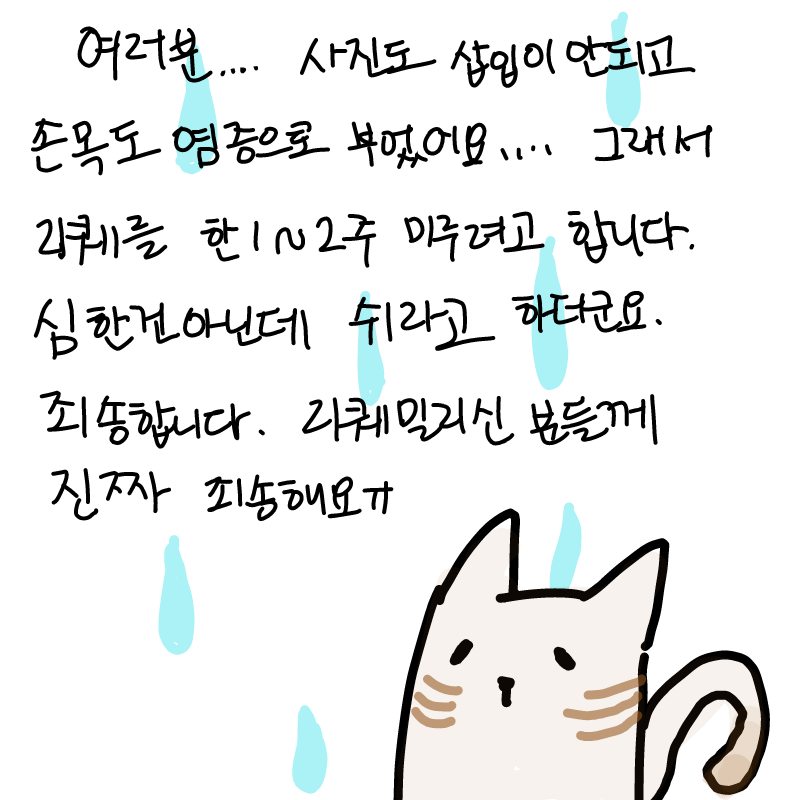 여러분.... 사진도 삽입이 안되고
손목도 염증으로 부었어요.... 그래서
리퀘를 한 1~2주 미루려고 합니다.
심한건아닌데 쉬라고 하더군요.
죄송합니다. 리퀘밀리신 분들께
진짜 죄송해요ㅠ